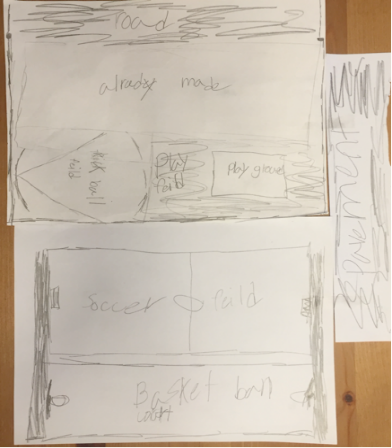 road
alradey made
kick ball
faild
play
faild
play ground
pavement
Soccer faild
Basket ball
court